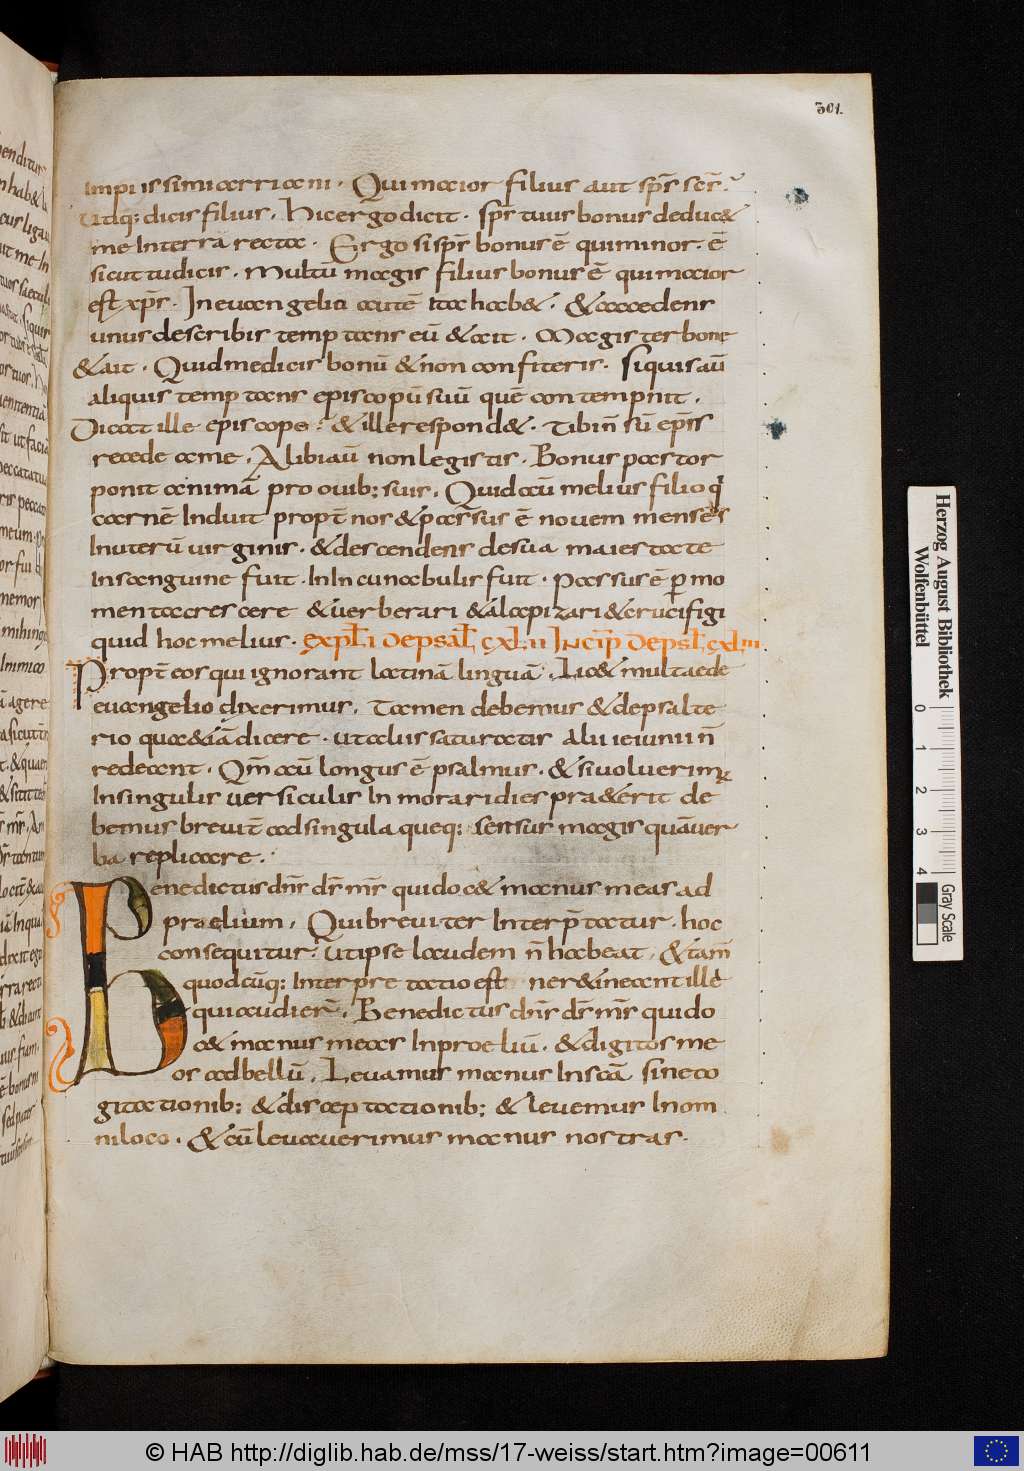 301.
impiissimi arriani · Qui maior filius aut sp̄s sc̄s ·
Utiq; dicis filius · Hic ergo dicit · sp̄s tuus bonus deduc&
me In terra recta · Ergo si sp̄s bonus ē qui minor · ē
sicut tu dicis · Multū magis filius bonus ē qui maior
est xp̄s · In euangelio autē ita hab& · & accedens
unus de scribis temptans eū & ait · Magister bone
& ait · Quid me dicis bonū & non confiteris · Siquis aū
aliquis temptans episcopū suū quē contempnit ·
Dicat ille episcope · & ille respond& · Tibi n̄ sū ep̄s
recede a me · Alibi aū non legistis · Bonus pastor
ponit animā pro ouib; suis · Quid aū melius filio q
carnē Induit propt̄ nos & passus ē nouem menses
In uterū uirginis · & descendens de sua maiestate
In sanguine fuit · In Incunabulis fuit · Passus ē p mo
menta crescere & uerberari & alapizari & crucifigi
quid hoc melius · expl̄i de psal̄ cxl·ii Incip̄ de psl̄ cxl·iii
Propt̄ eos qui ignorant latinā linguā · Lic& multa ede
euangelio dixerimus · Tamen debemus & de psalte
rio quo& iā dicere · ut aliis saturatis alii ieiuni n̄
redeant · Qm̄ aū longus ē psalmus · & si uoluerim;
In singulis uersiculis In morari dies pra&erit de
bemus breuit̄ ad singula queq; sensus magis quā uer
ba replicare ·
Benedictus dn̄s ds̄ ms̄ qui doc& manus meas ad
praelium · Qui breuiter Interp̄tatur · hoc
consequitur · ut ipse laudem n̄ habeat · & tam̄
quodcūq; Interpretatio est ner& ineant ille
qui audier̄ · Benedictus dn̄s ds̄ ms̄ qui do
c& manus meas In proeliū · & digitos me
os ad bellū · Leuamus manus In scā sine co
gitationib; & disceptationib; & leuemus In om
ni loco · & cū leuauerimus manus nostras ·
Herzog August Bibliothek
Wolfenbüttel
0 1 2 3 4
Gray Scale
© HAB http://diglib.hab.de/mss/17-weiss/start.htm?image=00611